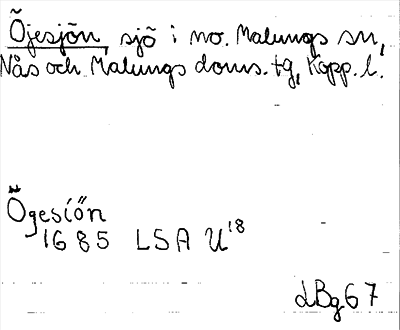 Öjesjön, sjö i no. Malungs sn,
Nås och Malungs doms. tg, Kopp. l.
Ögesiön
1685 LSA U18
LBg67